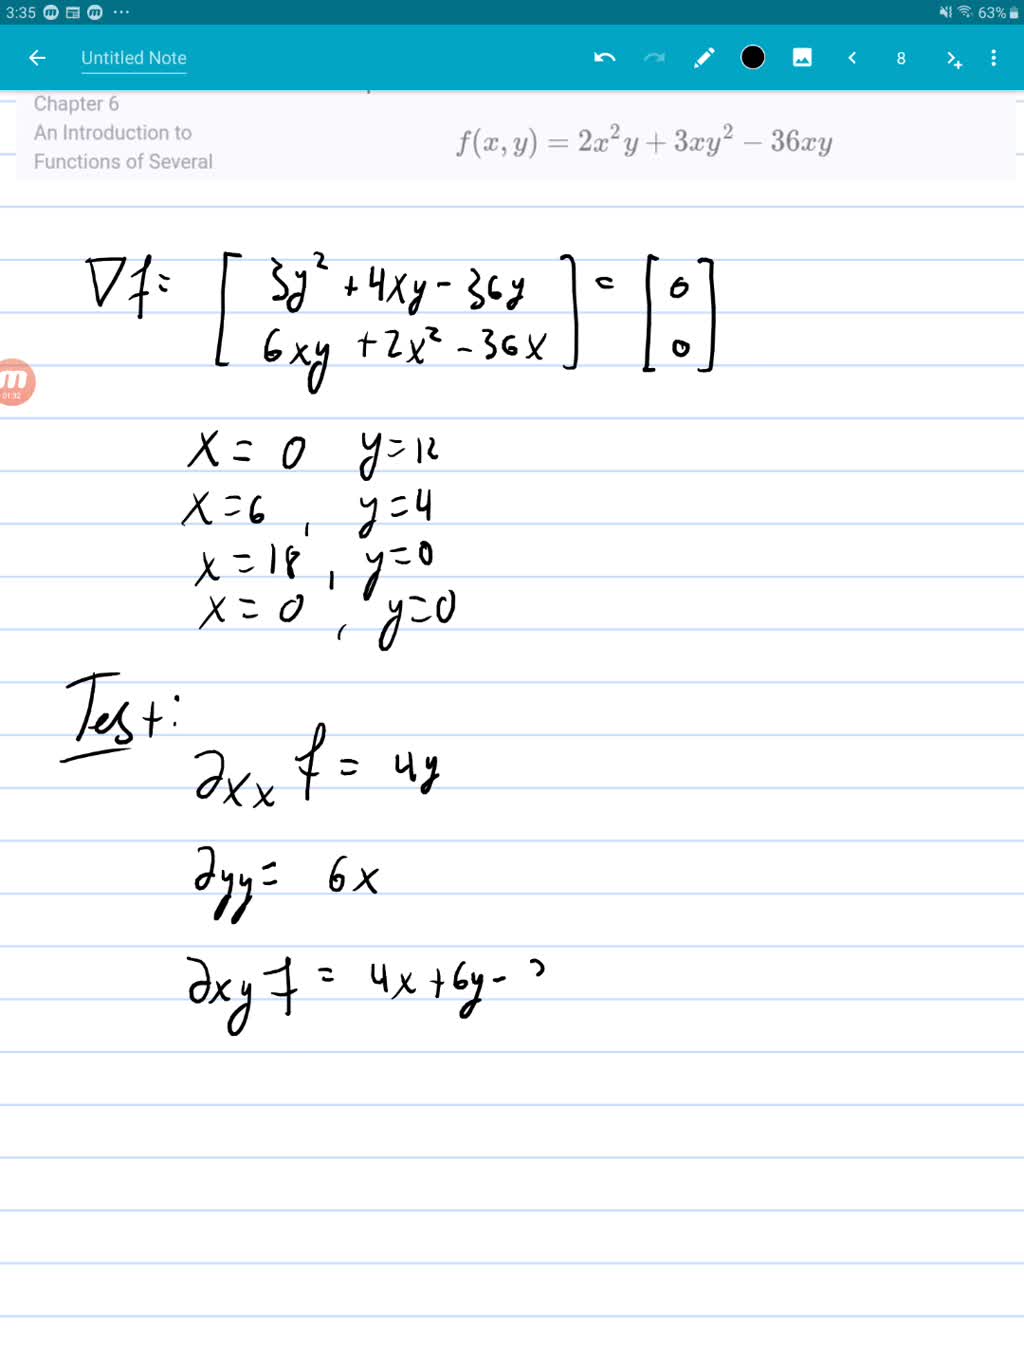 3:35 63%
Untitled Note 8
Chapter 6
An Introduction to
Functions of Several
f(x, y) = 2x²y + 3xy² − 36xy
∇f = [ 3y² + 4xy - 36y ] = [ 0 ]
[ 6xy + 2x² - 36x ] [ 0 ]
01:32
x = 0 y = 12
x = 6 , y = 4
x = 18 , y = 0
x = 0 , y = 0
Test:
∂xx f = 4y
∂yy = 6x
∂xy f = 4x + 6y -